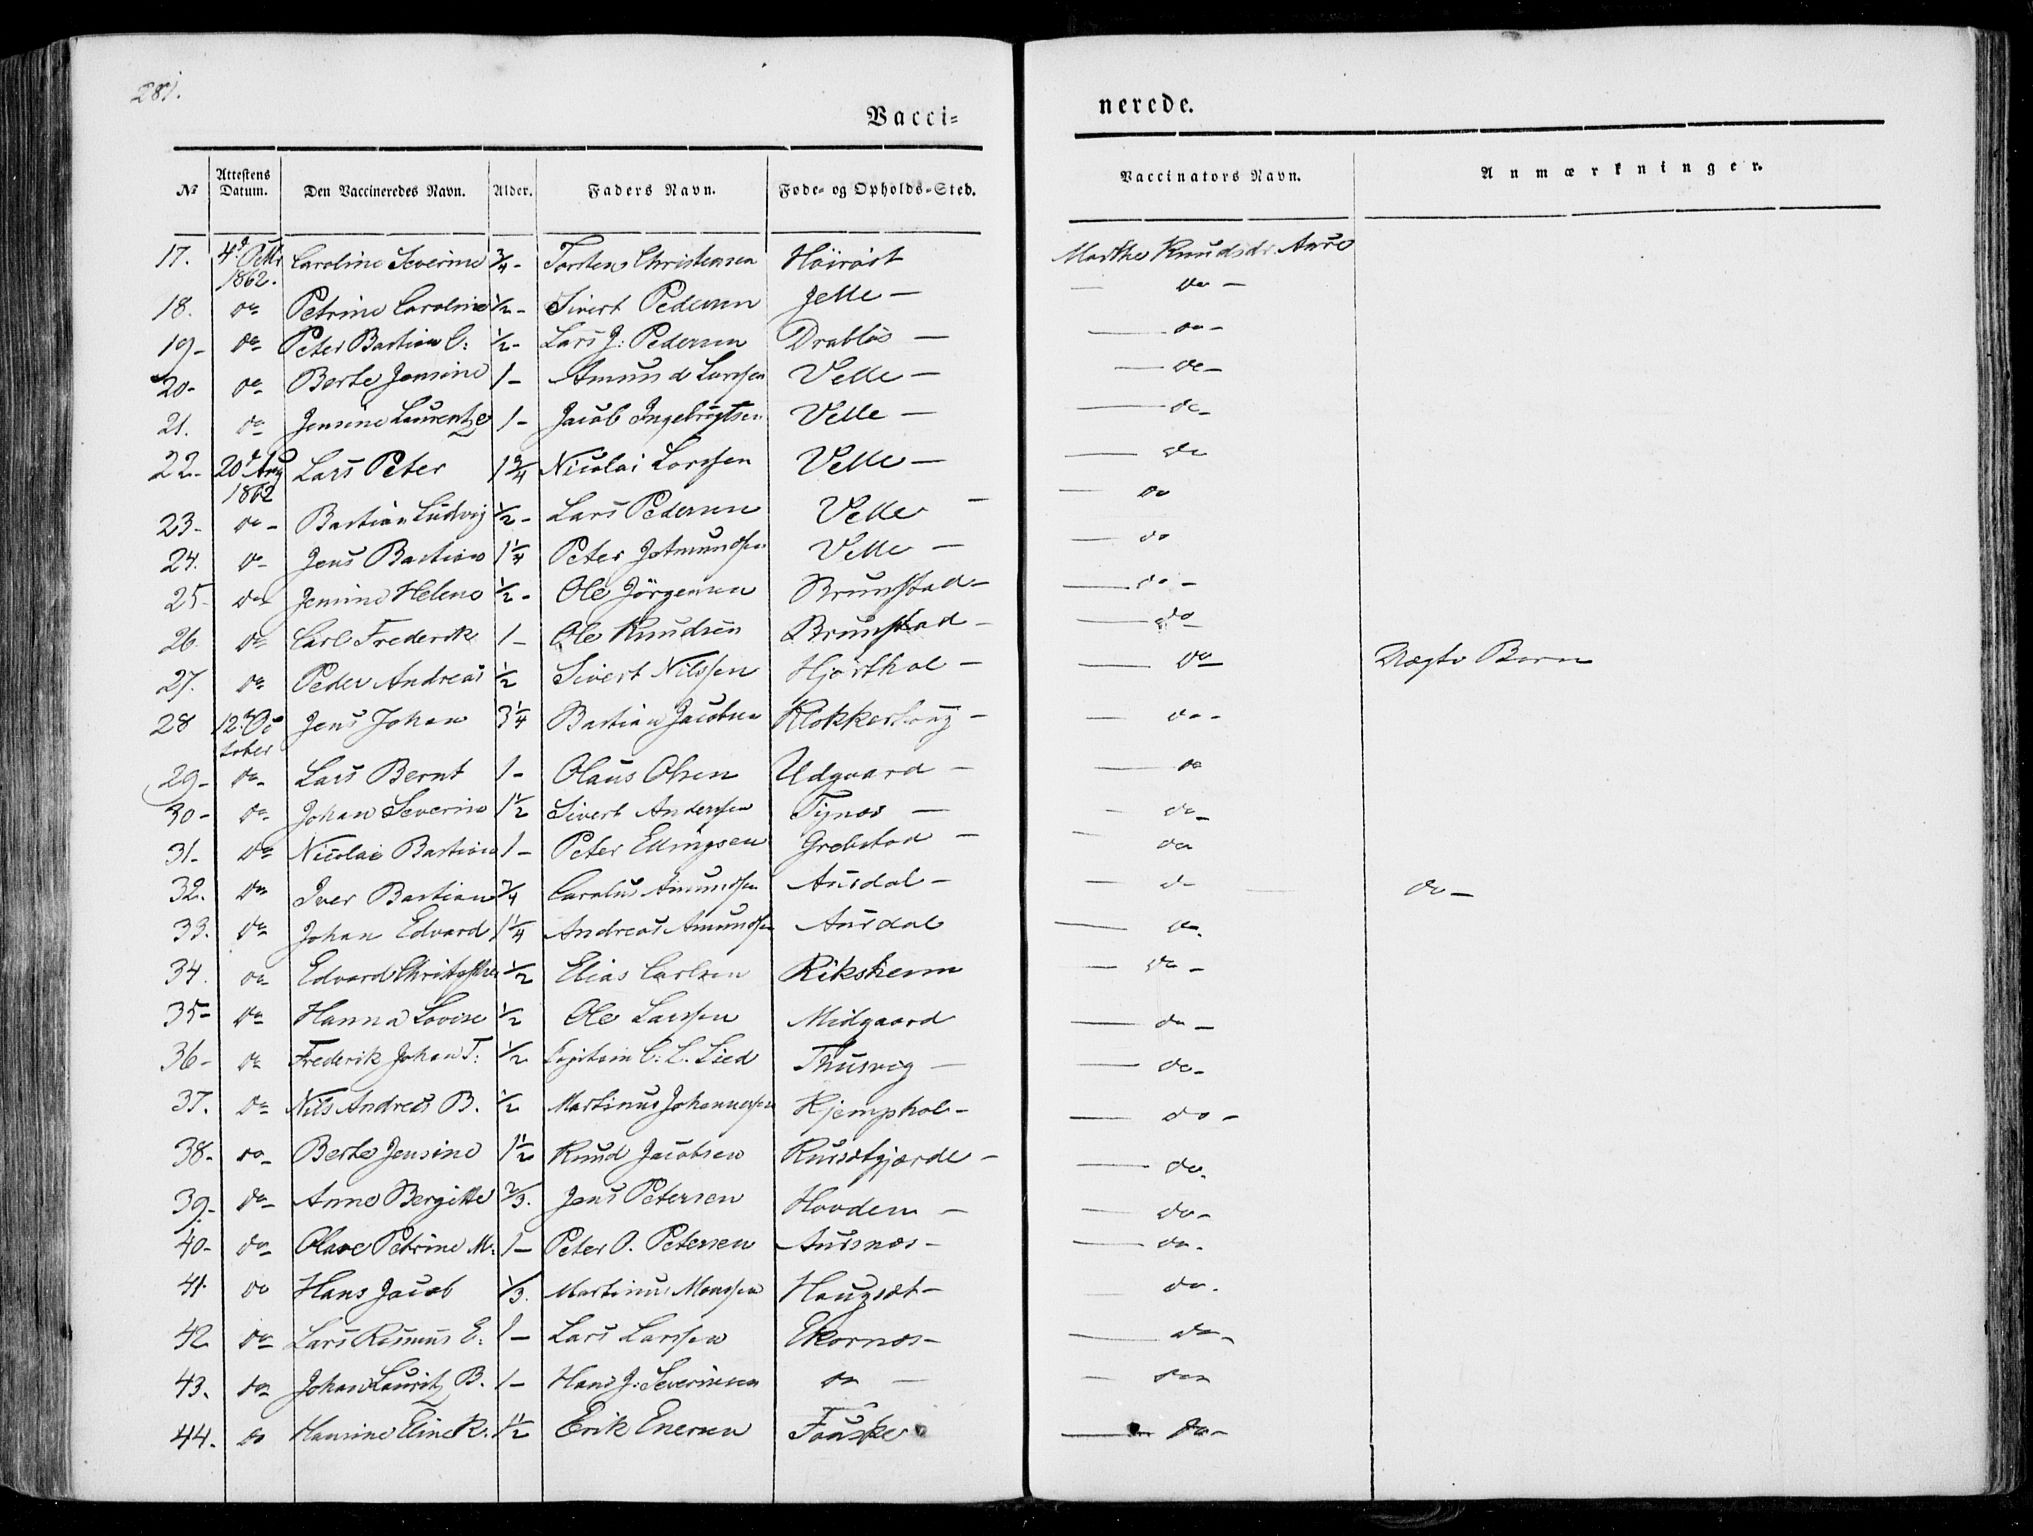 281.
Vacci-
nerede.
№ Attestens Datum. Den Vaccineredes Navn. Alder. Faders Navn. Føde- og Opholds-Sted. Vaccinators Navn. Anmærkninger.
17. 4d Octbr 1862. Caroline Severine 3/4 - Torsten Christensen Martha Knudsdr. Aure
18. do Petrine Caroline 1/2 - Sivert Pedersen Jelle - - do -
19 - do Peter Bastian C: 1/2 - Lars J: Pedersen Drabløs - - do -
20 - do Berte Jensine 1 - Amund Larssen Velle - - do -
21. do Jensine Laurentze 1 - Jacob Ingebrigtsen Velle - - do -
22 - 20d Aug 1862 Lars Peter 1 3/4 Nicolai Larssen Velle - - do
23 - do - Bastian Ludvig 1/2 - Lars Pedersen Velle - - do
24. do Jens Bastian 1 1/4 Peter Velle - - do
25 - do Jensine Helene 1/2 - Ole Jörgensen Brunstad - - do -
26. do Carl Frederik 1 - Ole Knudsen Brunstad - - do
27. do Peder Andreas 1/2 Sivert Nilssen Hjorthol - - do Uægte Barn
28 12te October Jens Johan 3 1/4 Bastian Jacobsen Klokkerhoug - - do -
29 - do - Lars Bernt 1 - Olaus Olsen Udgaard - - do
30 - do - Johan Severin 1 1/2 Sivert Anderssen Tynes - - do -
31 - do Nicolai Bastian 1 - Peter Ellingsen Grebstad - - do
32. do Iver Bastian 3/4 Carolus Amundsen Aursdal - - do - do -
33. do Johan Edvard 1 1/4 Andreas Amundsen Aursdal - do.
34. do Edvard 1/2 Elias Carlsen Riksheim - do -
35 - do Hanna Lovise 1/2 Ole Larssen Midgaard - do -
36 - do Frederik Johan T: 1/2 Capitain C: L. Lied Thusvig - - do -
37. do Nils Andreas B. 1/2 Martinus Johannessen Kjemphol - - do -
38 - do - Berte Jensine 1 1/2 Knud Jacobsen Kursetgjærde - - do.
39 - do - Anne Bergitte 2/3. Jens Petersen Hovden - - do -
40 - do - Olave Petrine M: 1 - Peter O. Petersen Aursnes - - do.
41. do Hans Jacob 1/3. Martinus Monssen Haugset - - do.
42 do Lars Rasmus E: 1 - Lars Larssen Ekornes - - do -
43. do Johan Lauritz B. 1 - Hans J: Severinsen do - - do
44. do Hansine Eline K. 1 1/2 Erik Enersen Fauske - do -